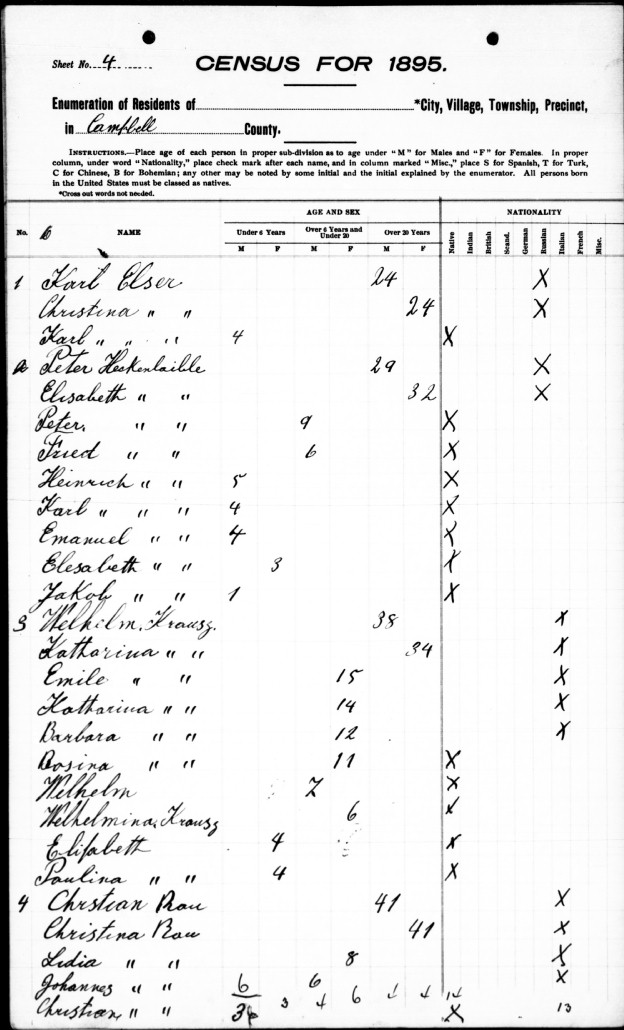 Sheet No. 4
CENSUS FOR 1895.
Enumeration of Residents of *City, Village, Township, Precinct,
in Campbell County.
INSTRUCTIONS.—Place age of each person in proper sub-division as to age under "M" for Males and "F" for Females. In proper
column, under word "Nationality," place check mark after each name, and in column marked "Misc.," place S for Spanish, T for Turk,
C for Chinese, B for Bohemian; any other may be noted by some initial and the initial explained by the enumerator. All persons born
in the United States must be classed as natives.
*Cross out words not needed.
AGE AND SEX NATIONALITY
No. NAME Under 6 Years Over 6 Years and Under 20 Over 20 Years Native Indian British Scand. German Russian Italian French Misc.
M F M F M F
1 Karl Elser 24 X
Christina " " 24 X
Karl " " " 4 X
2 Peter Heckenlaible 29 X
Elisabeth " " 32 X
Peter, " " 9 X
Fried " " 6 X
Heinrich " " 5 X
Karl " " " 4 X
Emanuel " " 4 X
Elesabeth " " 3 X
Jakob " " 1 X
3 Welhelm, Krausz. 38 X
Katharina " " 34 X
Emile " " 15 X
Katharina " " 14 X
Barbara " " 12 X
Rosina " " 11 X
Welhelm 7 X
Welhelmina, Krausz 6 X
Elisabeth 4 X
Paulina " " 4 X
4 Chrstian Rau 41 X
Christina Rau 41 X
Lidia " " 8 X
Johannes " " 6 6 X
Christian, " " 3 3 4 6 4 4 14 X 13